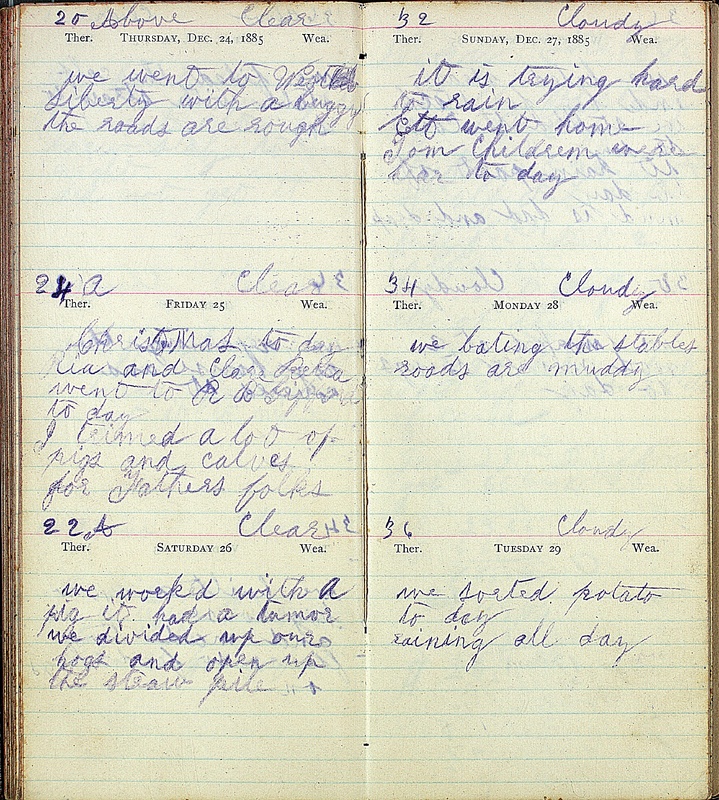 20 Above Clear
Ther. THURSDAY, DEC. 24, 1885 Wea.
we went to West
Liberty with a buggy
the roads are rough
24 A Clear
Ther. FRIDAY 25 Wea.
Christmas to day
Lia and Clara Retta
went to R B
to day
I trimed a lot of
pigs and calves
for Fathers folks
22 A Clear
Ther. SATURDAY 26 Wea.
we worked with A
pig it had a tumor
we divided up our
hogs and open up
the straw pile
32 Cloudy
Ther. SUNDAY, DEC. 27, 1885 Wea.
it is trying hard
to rain
Ett went home
Tom Childrem were
here to day
34 Cloudy
Ther. MONDAY 28 Wea.
we bating the stables
roads are muddy
36 Cloudy
Ther. TUESDAY 29 Wea.
we sorted potato
to day
raining all day